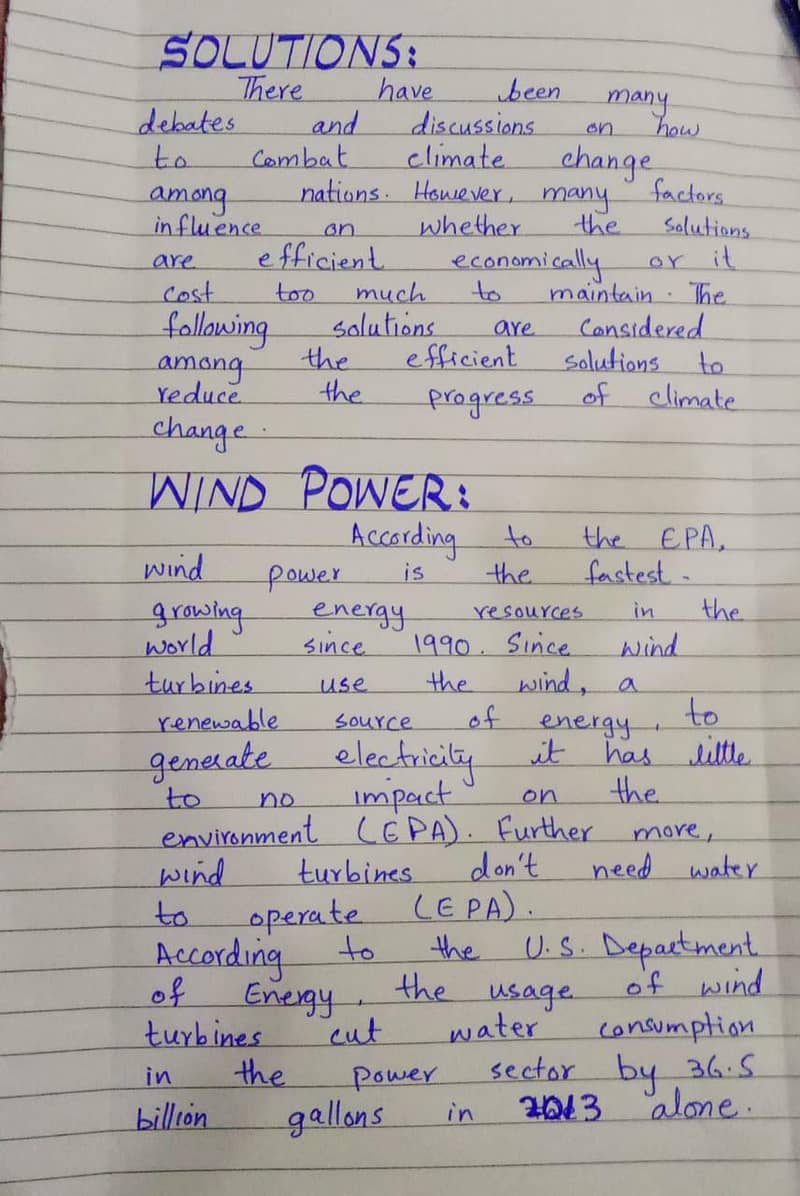 SOLUTIONS:
There have been many
debates and discussions on how
to Combat climate change
among nations. However, many factors
influence on whether the solutions
are efficient economically or it
cost too much to maintain. The
following solutions are Considered
among the efficient solutions to
reduce the progress of climate
change.
WIND POWER:
According to the EPA,
wind power is the fastest-
growing energy resources in the
world since 1990. Since wind
turbines use the wind, a
renewable source of energy, to
generate electricity it has little
to no impact on the
environment (EPA). Further more,
wind turbines don't need water
to operate (EPA).
According to the U.S. Department
of Energy, the usage of wind
turbines cut water consumption
in the power sector by 36.5
billion gallons in 2013 alone.